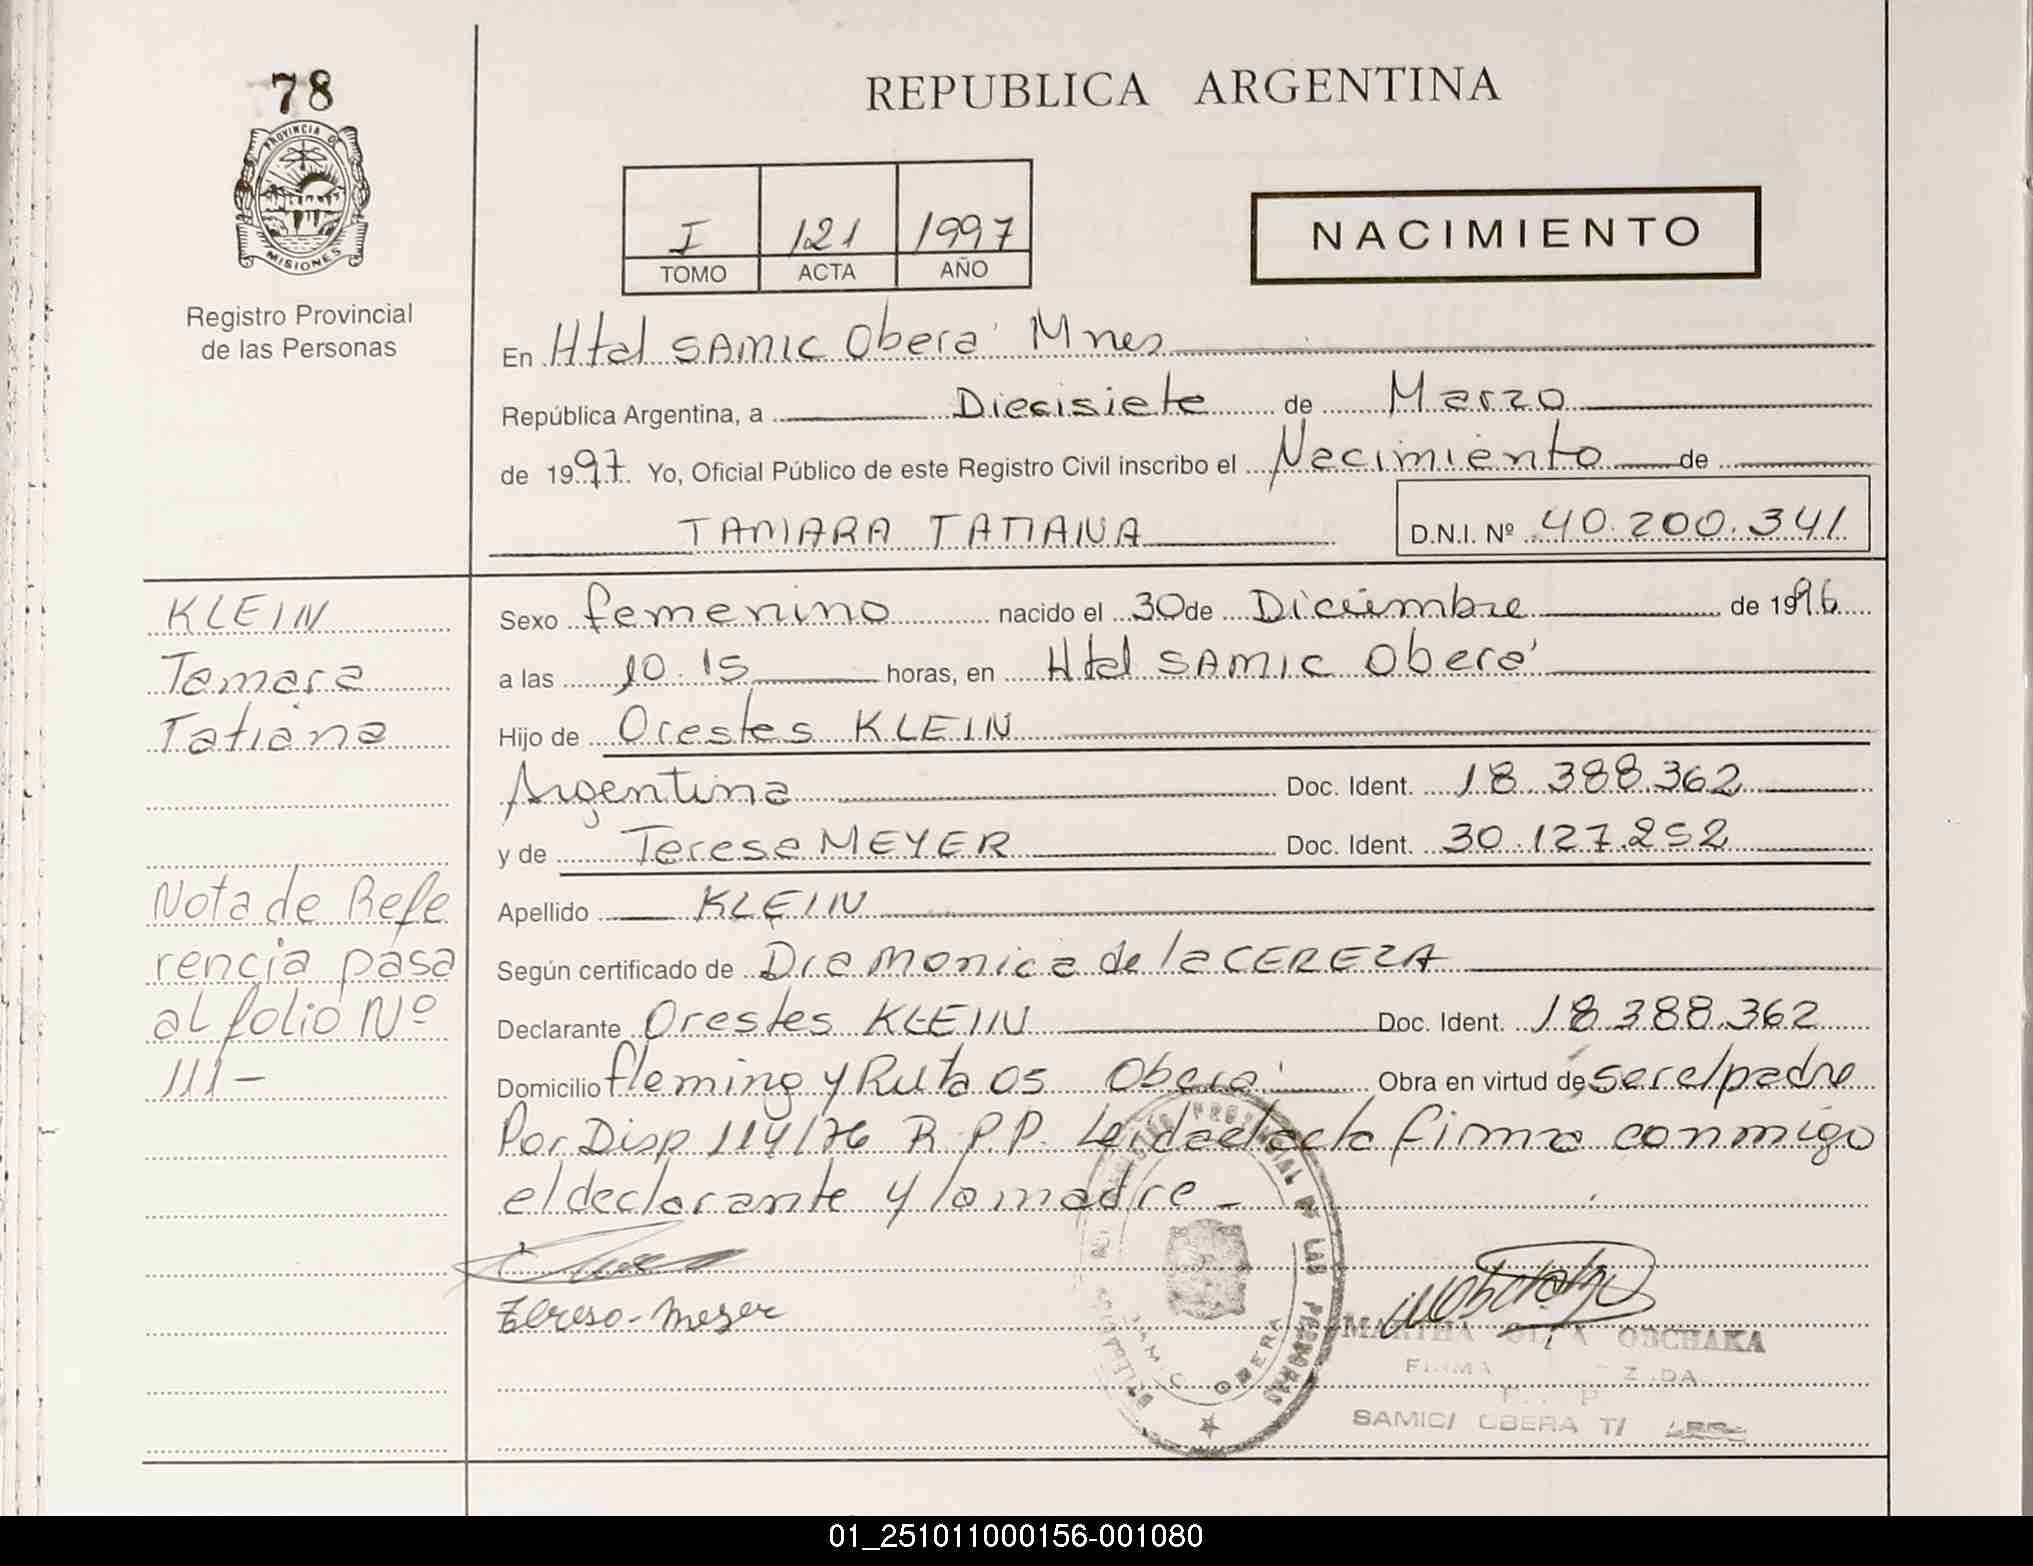 78
PROVINCIA DE
MISIONES
Registro Provincial
de las Personas
REPUBLICA ARGENTINA
I 121 1997
TOMO ACTA AÑO
NACIMIENTO
En Htal SAMIC Oberá Mnes
República Argentina, a Diecisiete de Marzo
de 1997. Yo, Oficial Público de este Registro Civil inscribo el Nacimiento de
TAMARA TATIANA D.N.I. Nº 40.200.341
KLEIN
Tamara
Tatiana
Nota de Refe
rencia pasa
al folio Nº
111-
Sexo femenino nacido el 30 de Diciembre de 1996
a las 10.15 horas, en Htal SAMIC Oberá
Hijo de Orestes KLEIN
Argentina Doc. Ident. 18.388.362
y de Teresa MEYER Doc. Ident. 30.127.252
Apellido KLEIN
Según certificado de Dra Monica de la CEREZA
Declarante Orestes KLEIN Doc. Ident. 18.388.362
Domicilio fleming y Ruta 05 Oberá Obra en virtud de ser el padre
Por Disp 114/76 R.P.P. Leida el acta firma conmigo
el declarante y la madre -
Tereso-Meyer
LAS PERSONAS
OBERA
MARTHA OBCHAKA
SAMIC/ OBERA T/
01_251011000156-001080